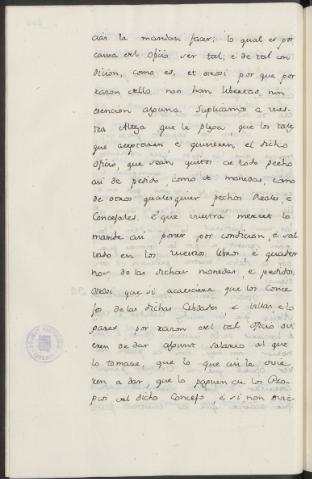 asi la mandan facer; lo qual es por
causa del oficio ser tal, é de tal con
dicion, como es, et otrosi por que por
razon dello non han libertad, nin
esencion alguna. Suplicamos a vues-
tra Alteza que le plega, que los tales
que aceptaren, é quisieren, el dicho
oficio, que sean quitos de todo pecho
asi de pedido, como de monedas, como
de otros qualesquier pechos Reales, é
Concejales. É que vuestra merced lo
mande asi poner por condicion, é sal
vado en los vuestros libros, é quader
nos de las dichas monedas, é pedidos,
otrosi que si acaesciere que los Conce-
jos de las dichas Cibdades é villas é lo
gares, por razon del tal oficio ovi
eren de dar algunt salario al que
lo tomare, que lo que asi le ovie-
ren a dar, que lo paguen de los Pro-
pios del dicho Concejo, é si non ovie-